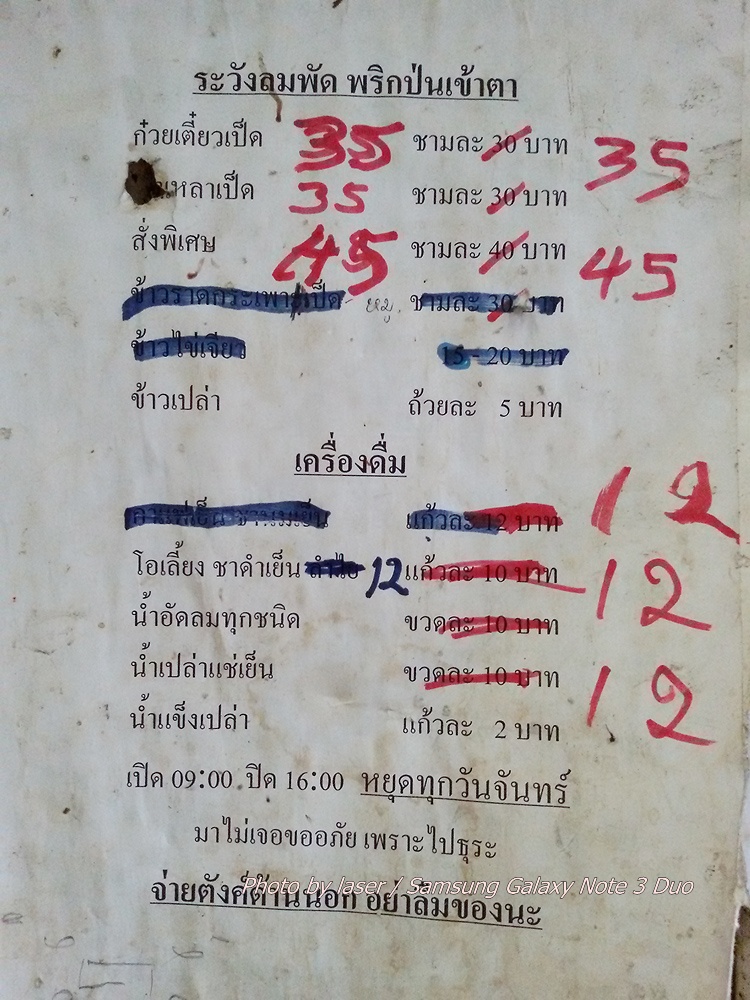 ระวังลมพัด พริกป่นเข้าตา
ก๋วยเตี๋ยวเป็ด 35 ชามละ 30 บาท 35
เหลาเป็ด 35 ชามละ 30 บาท
สั่งพิเศษ 45 ชามละ 40 บาท 45
ข้าวราดกระเพาะเป็ด หมู ชามละ 30 บาท
ข้าวไข่เจียว 15 - 20 บาท
ข้าวเปล่า ถ้วยละ 5 บาท
เครื่องดื่ม
กาแฟเย็น ชานมเย็น แก้วละ 12 บาท 12
โอเลี้ยง ชาดำเย็น ลำไย 12 แก้วละ 10 บาท 12
น้ำอัดลมทุกชนิด ขวดละ 10 บาท
น้ำเปล่าแช่เย็น ขวดละ 10 บาท 12
น้ำแข็งเปล่า แก้วละ 2 บาท
เปิด 09:00 ปิด 16:00 หยุดทุกวันจันทร์
มาไม่เจอขออภัย เพราะไปธุระ
จ่ายตังค์ด้านนอก อย่าลืมของนะ
Photo by laser / Samsung Galaxy Note 3 Duo